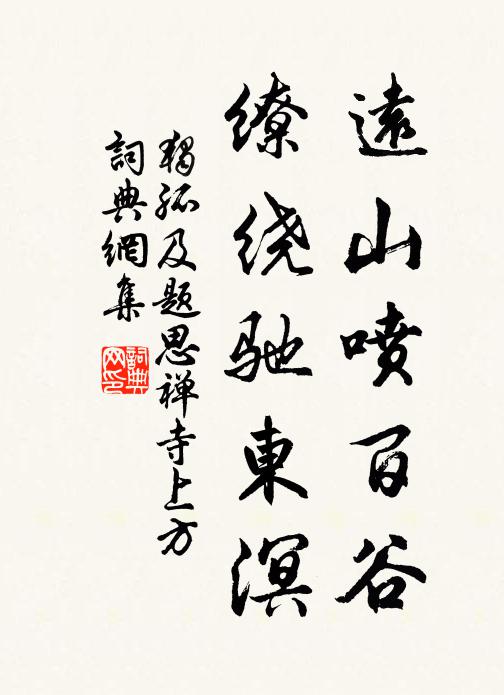 遠山噴百谷
繚绕馳東溟
獨孤及题思禅寺上方
詞典網集
詞典网印